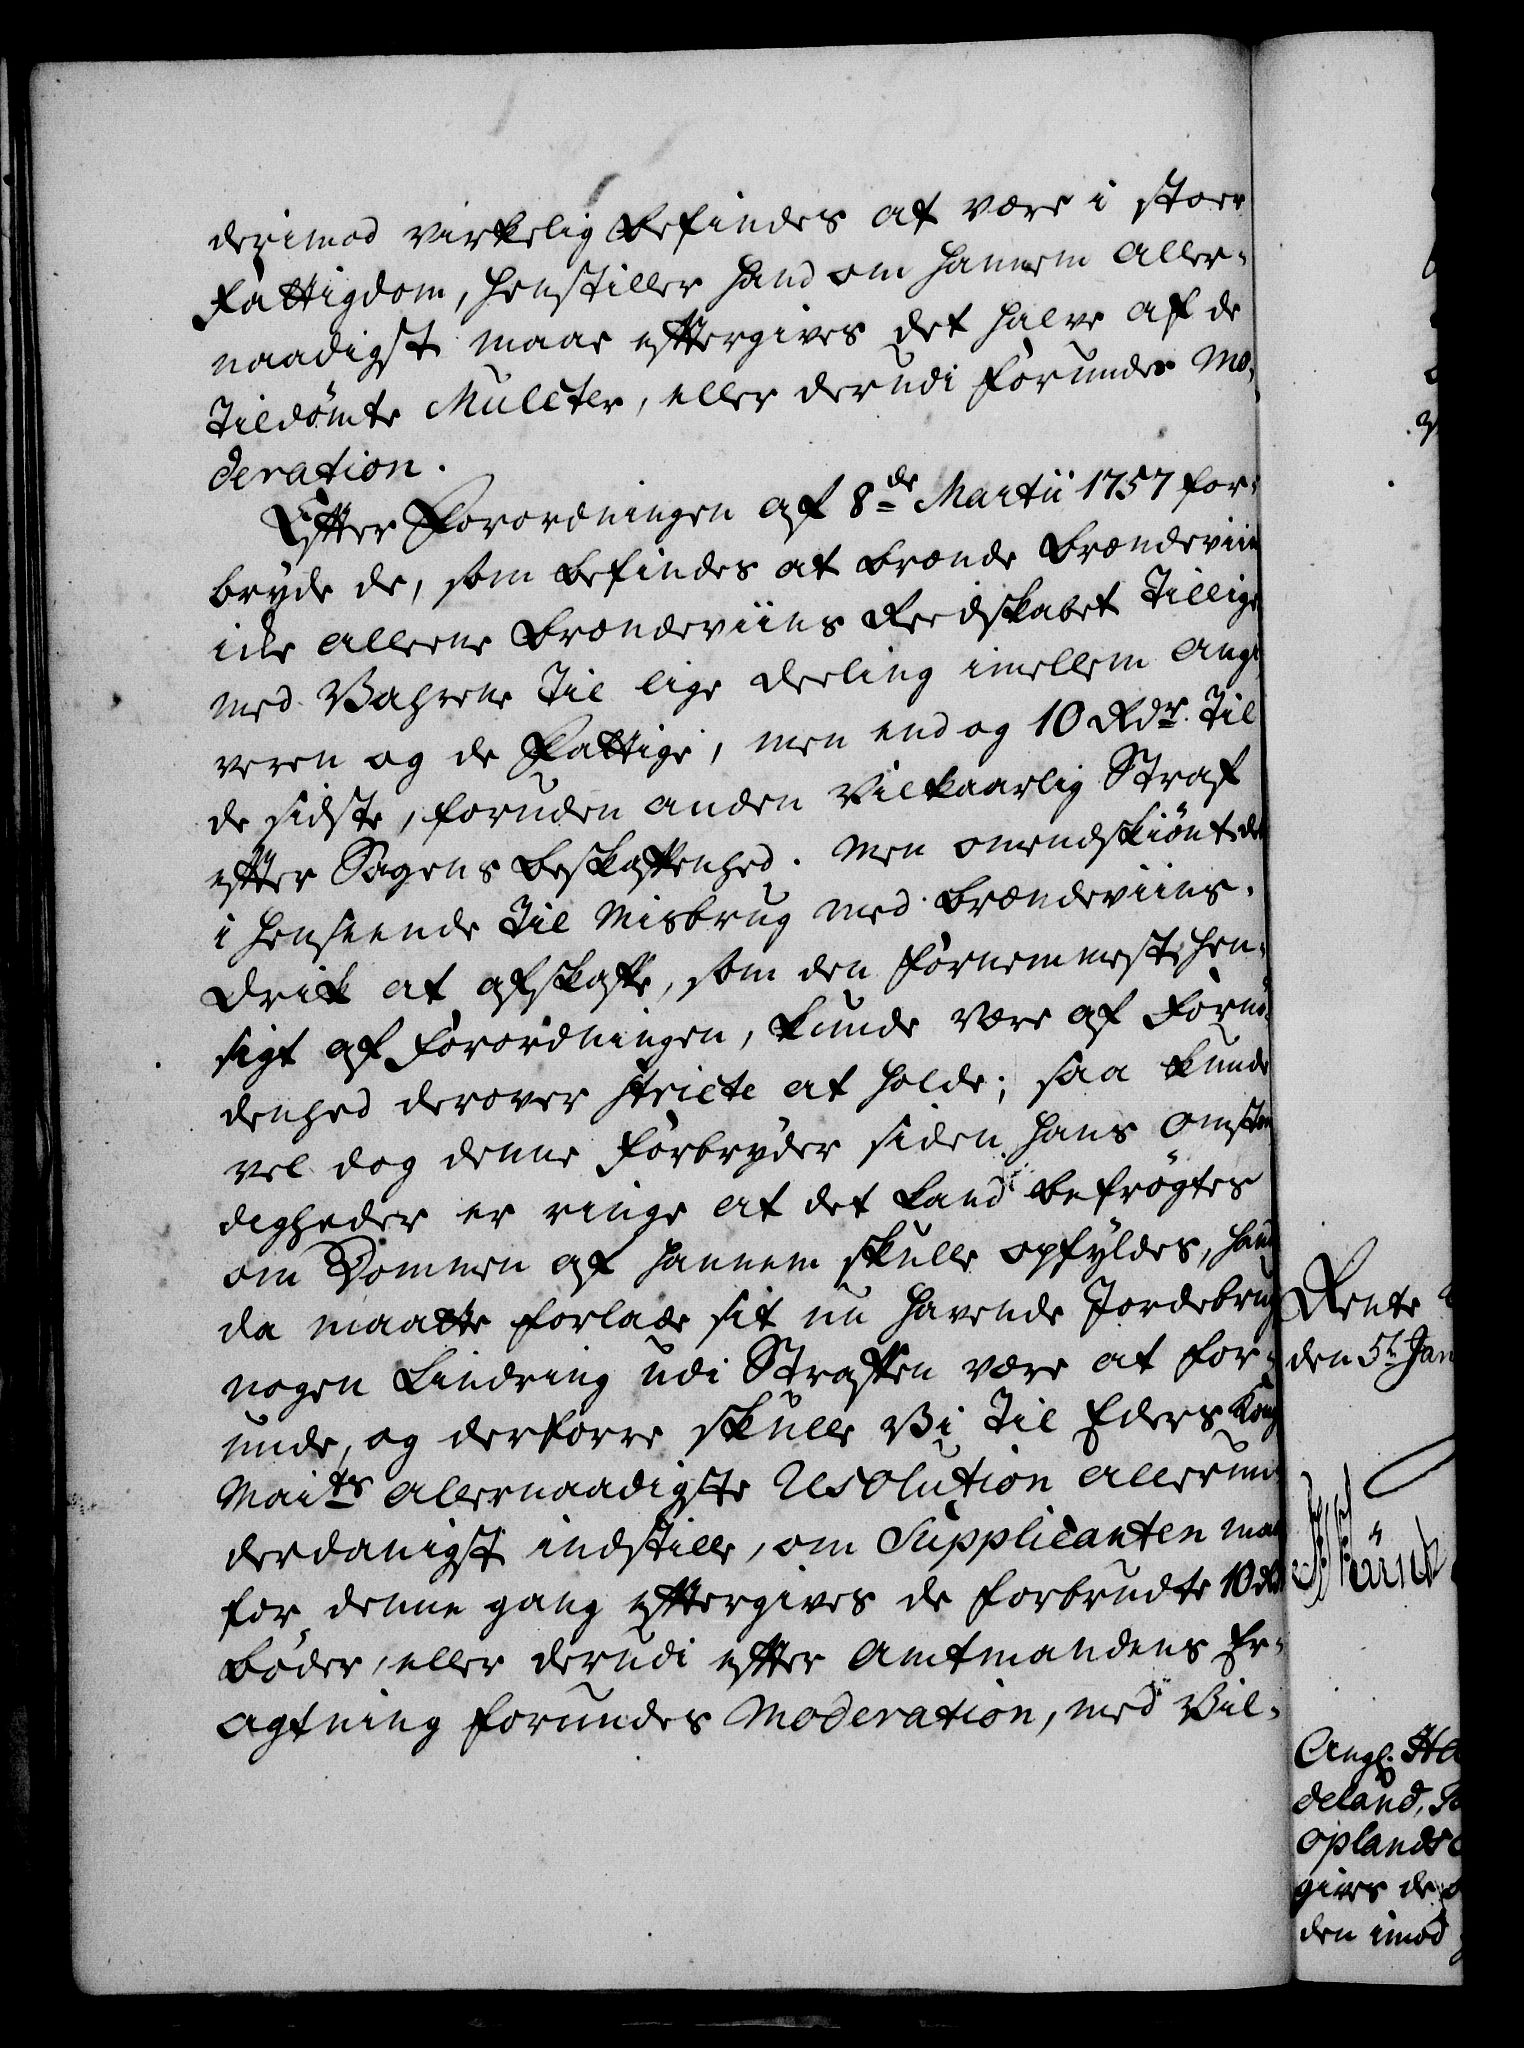 derimod virkelig befindes at være i stoer
Fattigdom, henstiller hand om hannem aller-
naadigst maae efftergives det halve af de
tildömte Mulcter, eller derudi forundes Mo-
deration.
Effter Forordningen af 8de Martii 1757 for-
bryde de, som befindes at brænde Brændeviin
icke alleene Brændeviins Reedskabet tillige
med Vahrene til lige deeling imellem Angi-
veren og de Fattige, men end og 10 Rdr. til
de sidste, foruden anden Vilkaarlig Straf
effter Sagens beskaffenhed. Men omendskiönt det
i henseende til Misbrug med Brændeviins-
drik at afskaffe, som den fornemmeste hen-
sigt af Forordningen, kunde være af Fornö-
denhed derover stricte at holde; saa kunde
vel dog denne Forbryder siden hans omstæn
digheder er ringe at det kand befrygtes
om Dommen af hannem skulle opfyldes, hand
da maatte forlade sit nu havende Jordebrug
nogen Lindring udi Straffen være at for-
unde, og derforre skulle Vi til Eders Kong
Maits allernaadigste Resolution allerun-
derdanigst indstille, om Supplicanten maa
for denne gang efftergives de forbrudte 10 Rdr
böder, eller derudi effter Amtmandens Er-
agtning forundes Moderation, med Vil-
Rente
den 5t Jan
Angl.
deland,
Oplands
gives de
den imod